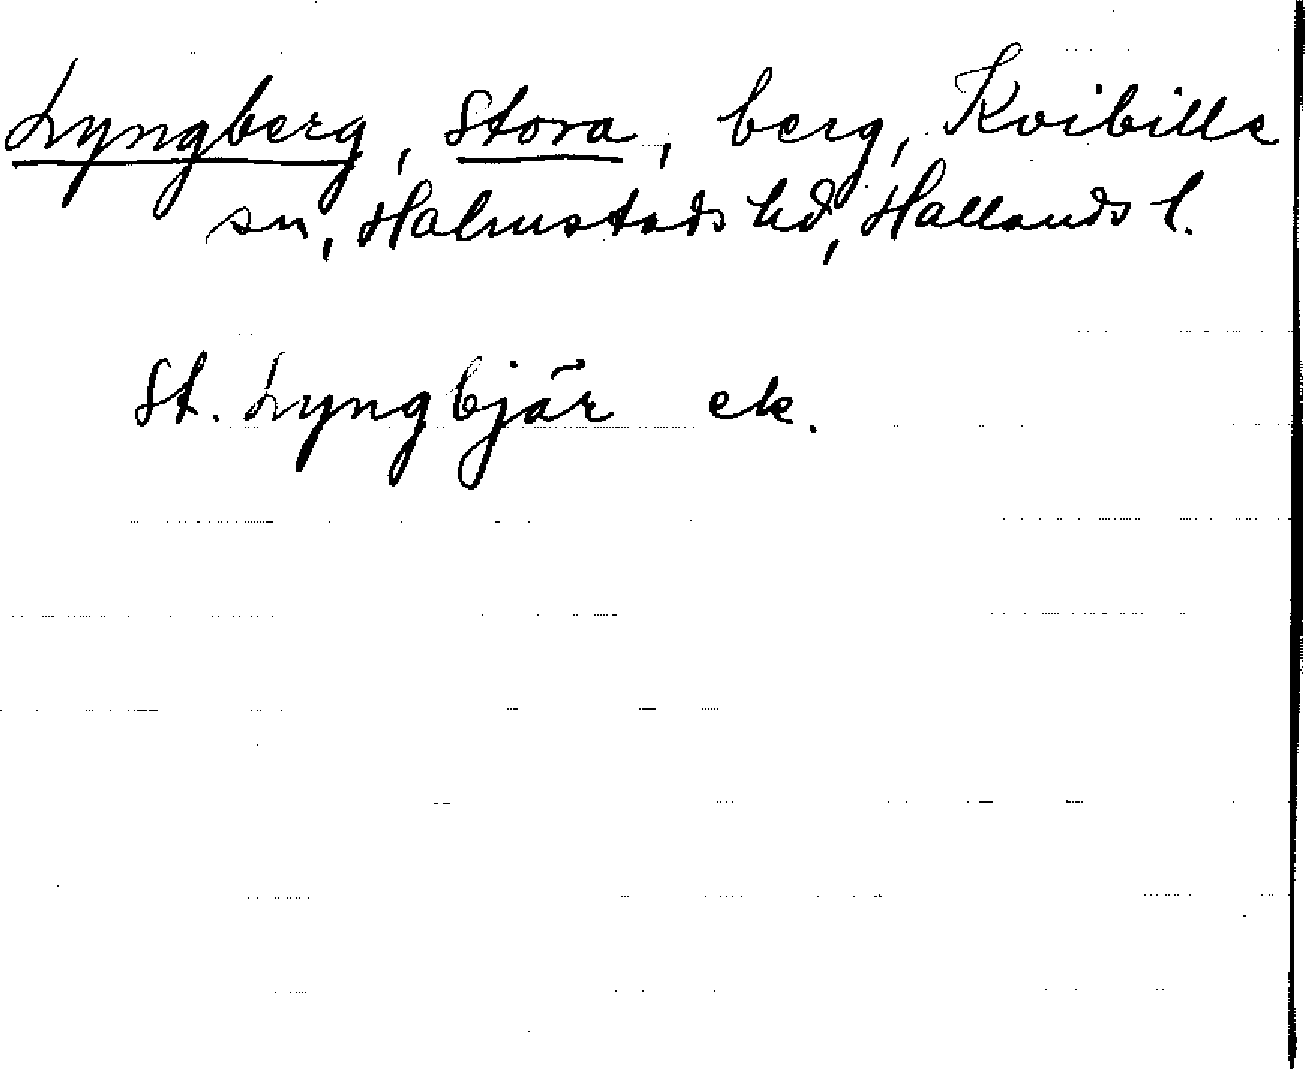 Lyngberg, Stora, berg, Kvibille
sn, Halmstads hd, Hallands l.
St. Lyngbjär ek.